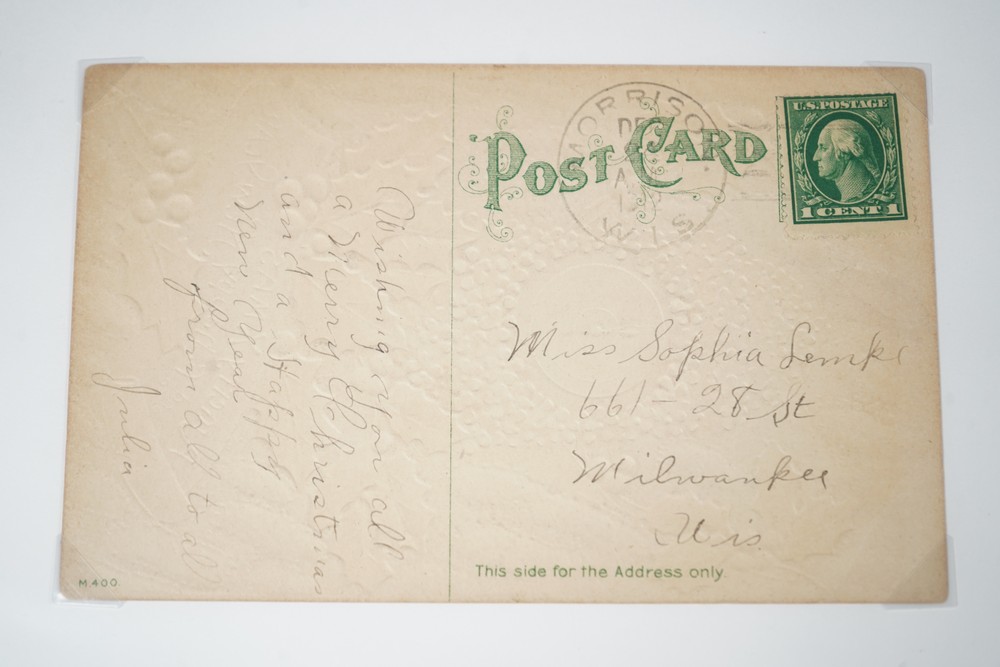 Wishing you all
a Merry Christmas
and a Happy
New Year
from all to all
Julia
M 400.
POST CARD
MORRISO
DE
WIS
U.S. POSTAGE
1 CENT 1
Miss Sophia Lemke
661 - 28 St
Milwaukee
Wis
This side for the Address only.